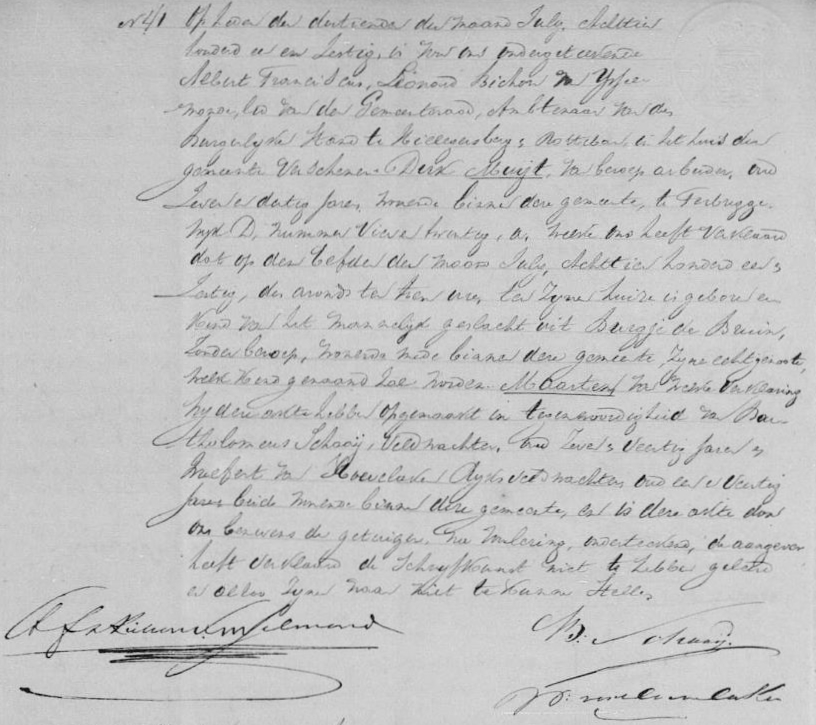 N 41 Op heden den dertienden der maand July, Achttien
honderd een en Zestig, is voor ons ondergeteekende
Albert Franciscus, Léonard Bichon van Yssel-
monde, lid van den Gemeenteraad, Ambtenaar van den
Burgerlyke Stand te Hillegersberg &
gemeente verschenen Dirk Muijt, van beroep arbeider, oud
dertig jaren, wonende binnen deze gemeente, te Terbregge
Wyk D, nummer Vier en twintig, a, welke ons heeft verklaard
dat op den Elfden der maand July, Achttien honderd een &
Zestig, des avonds ten tien ure, ten zynen huize is geboren een
Kind van het mannelyk geslacht uit Burgje de Bruin,
Zonder beroep, wonende mede binnen deze gemeente, Zyne echtgenoote,
welk Kind genaamd zal worden Maarten, Van welke verklaring
wy deze akte hebben opgemaakt in tegenwoordigheid van Bar-
tholomeus Schaaij, Veldwachter, oud Zeven & Veertig jaren &
van Hoevelake, Ryksveldwachter, oud een & Veertig
jaren beide wonende binnen deze gemeente, en is deze akte door
ons benevens de getuigen, na voorlezing, onderteekend, de aangever
heeft verklaard de Schryfkunst niet te hebben geleerd
en alzoo Zyne naam niet te kunnen Stellen
B: Schaaij.